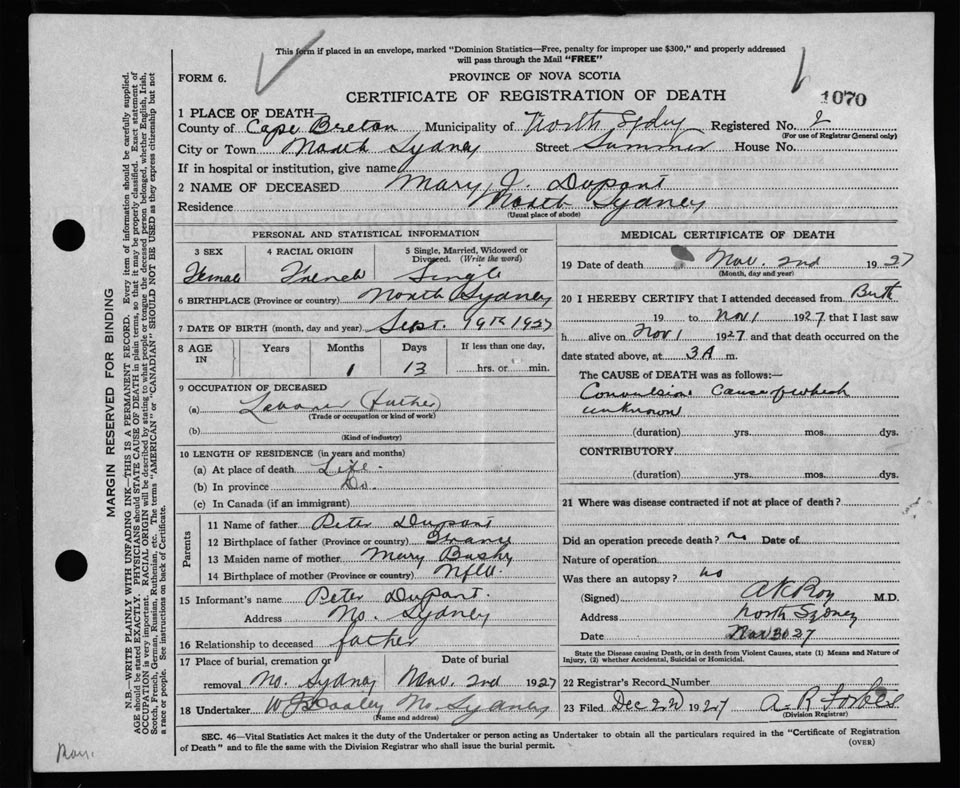 This form if placed in an envelope, marked "Dominion Statistics—Free, penalty for improper use $300," and properly addressed
will pass through the Mail "FREE"
FORM 6.
PROVINCE OF NOVA SCOTIA
CERTIFICATE OF REGISTRATION OF DEATH
1070
1 PLACE OF DEATH—
County of Cape Breton Municipality of North Sydney Registered No. 2
(For use of Registrar General only)
City or Town North Sydney Street Summer House No.
If in hospital or institution, give name
2 NAME OF DECEASED Mary J. Dupont
Residence North Sydney
(Usual place of abode)
PERSONAL AND STATISTICAL INFORMATION
3 SEX 4 RACIAL ORIGIN 5 Single, Married, Widowed or Divorced. (Write the word)
Female French Single
6 BIRTHPLACE (Province or country) North Sydney
7 DATE OF BIRTH (month, day and year) Sept. 19th 1927
8 AGE IN Years Months Days If less than one day,
1 13 hrs. or min.
9 OCCUPATION OF DECEASED
(a) Labourer (father)
(Trade or occupation or kind of work)
(b)
(Kind of industry)
10 LENGTH OF RESIDENCE (in years and months)
(a) At place of death Life.
(b) In province Do.
(c) In Canada (if an immigrant)
Parents
11 Name of father Peter Dupont
12 Birthplace of father (Province or country) France
13 Maiden name of mother Mary
14 Birthplace of mother (Province or country) Nfld.
15 Informant's name Peter Dupont.
Address No. Sydney
16 Relationship to deceased father
17 Place of burial, cremation or Date of burial
removal No. Sydney Nov. 2nd 1927
18 Undertaker No Sydney
(Name and address)
MEDICAL CERTIFICATE OF DEATH
19 Date of death Nov. 2nd 1927
(Month, day and year)
20 I HEREBY CERTIFY that I attended deceased from Birth
19 to Nov 1 1927 that I last saw
h alive on Nov 1 1927 and that death occurred on the
date stated above, at 3 A m.
The CAUSE of DEATH was as follows:—
Convulsions Cause of which
unknown
(duration) yrs. mos. dys.
CONTRIBUTORY
(duration) yrs. mos. dys.
21 Where was disease contracted if not at place of death?
Did an operation precede death? no Date of
Nature of operation
Was there an autopsy? no
(Signed) A K Roy M.D.
Address North Sydney
Date Nov 30 27
State the Disease causing Death, or in death from Violent Causes, state (1) Means and Nature of
Injury, (2) whether Accidental, Suicidal or Homicidal.
22 Registrar's Record Number
23 Filed Dec 2nd 1927 A. R Forbes
(Division Registrar)
SEC. 46—Vital Statistics Act makes it the duty of the Undertaker or person acting as Undertaker to obtain all the particulars required in the "Certificate of Registration
of Death" and to file the same with the Division Registrar who shall issue the burial permit.
(OVER)
MARGIN RESERVED FOR BINDING
N.B.—WRITE PLAINLY WITH UNFADING INK—THIS IS A PERMANENT RECORD. Every item of information should be carefully supplied.
AGE should be stated EXACTLY. PHYSICIANS should STATE CAUSE OF DEATH in plain terms, so that it may be properly classified. Exact statement of
OCCUPATION is very important. RACIAL ORIGIN will be described by stating to what people or tongue the deceased person belonged, whether English, Irish,
Scotch, French, German, Russian, Ruthenian, etc. The terms "AMERICAN" or "CANADIAN" SHOULD NOT BE USED as they express citizenship but not
a race or people. See instructions on back of Certificate.